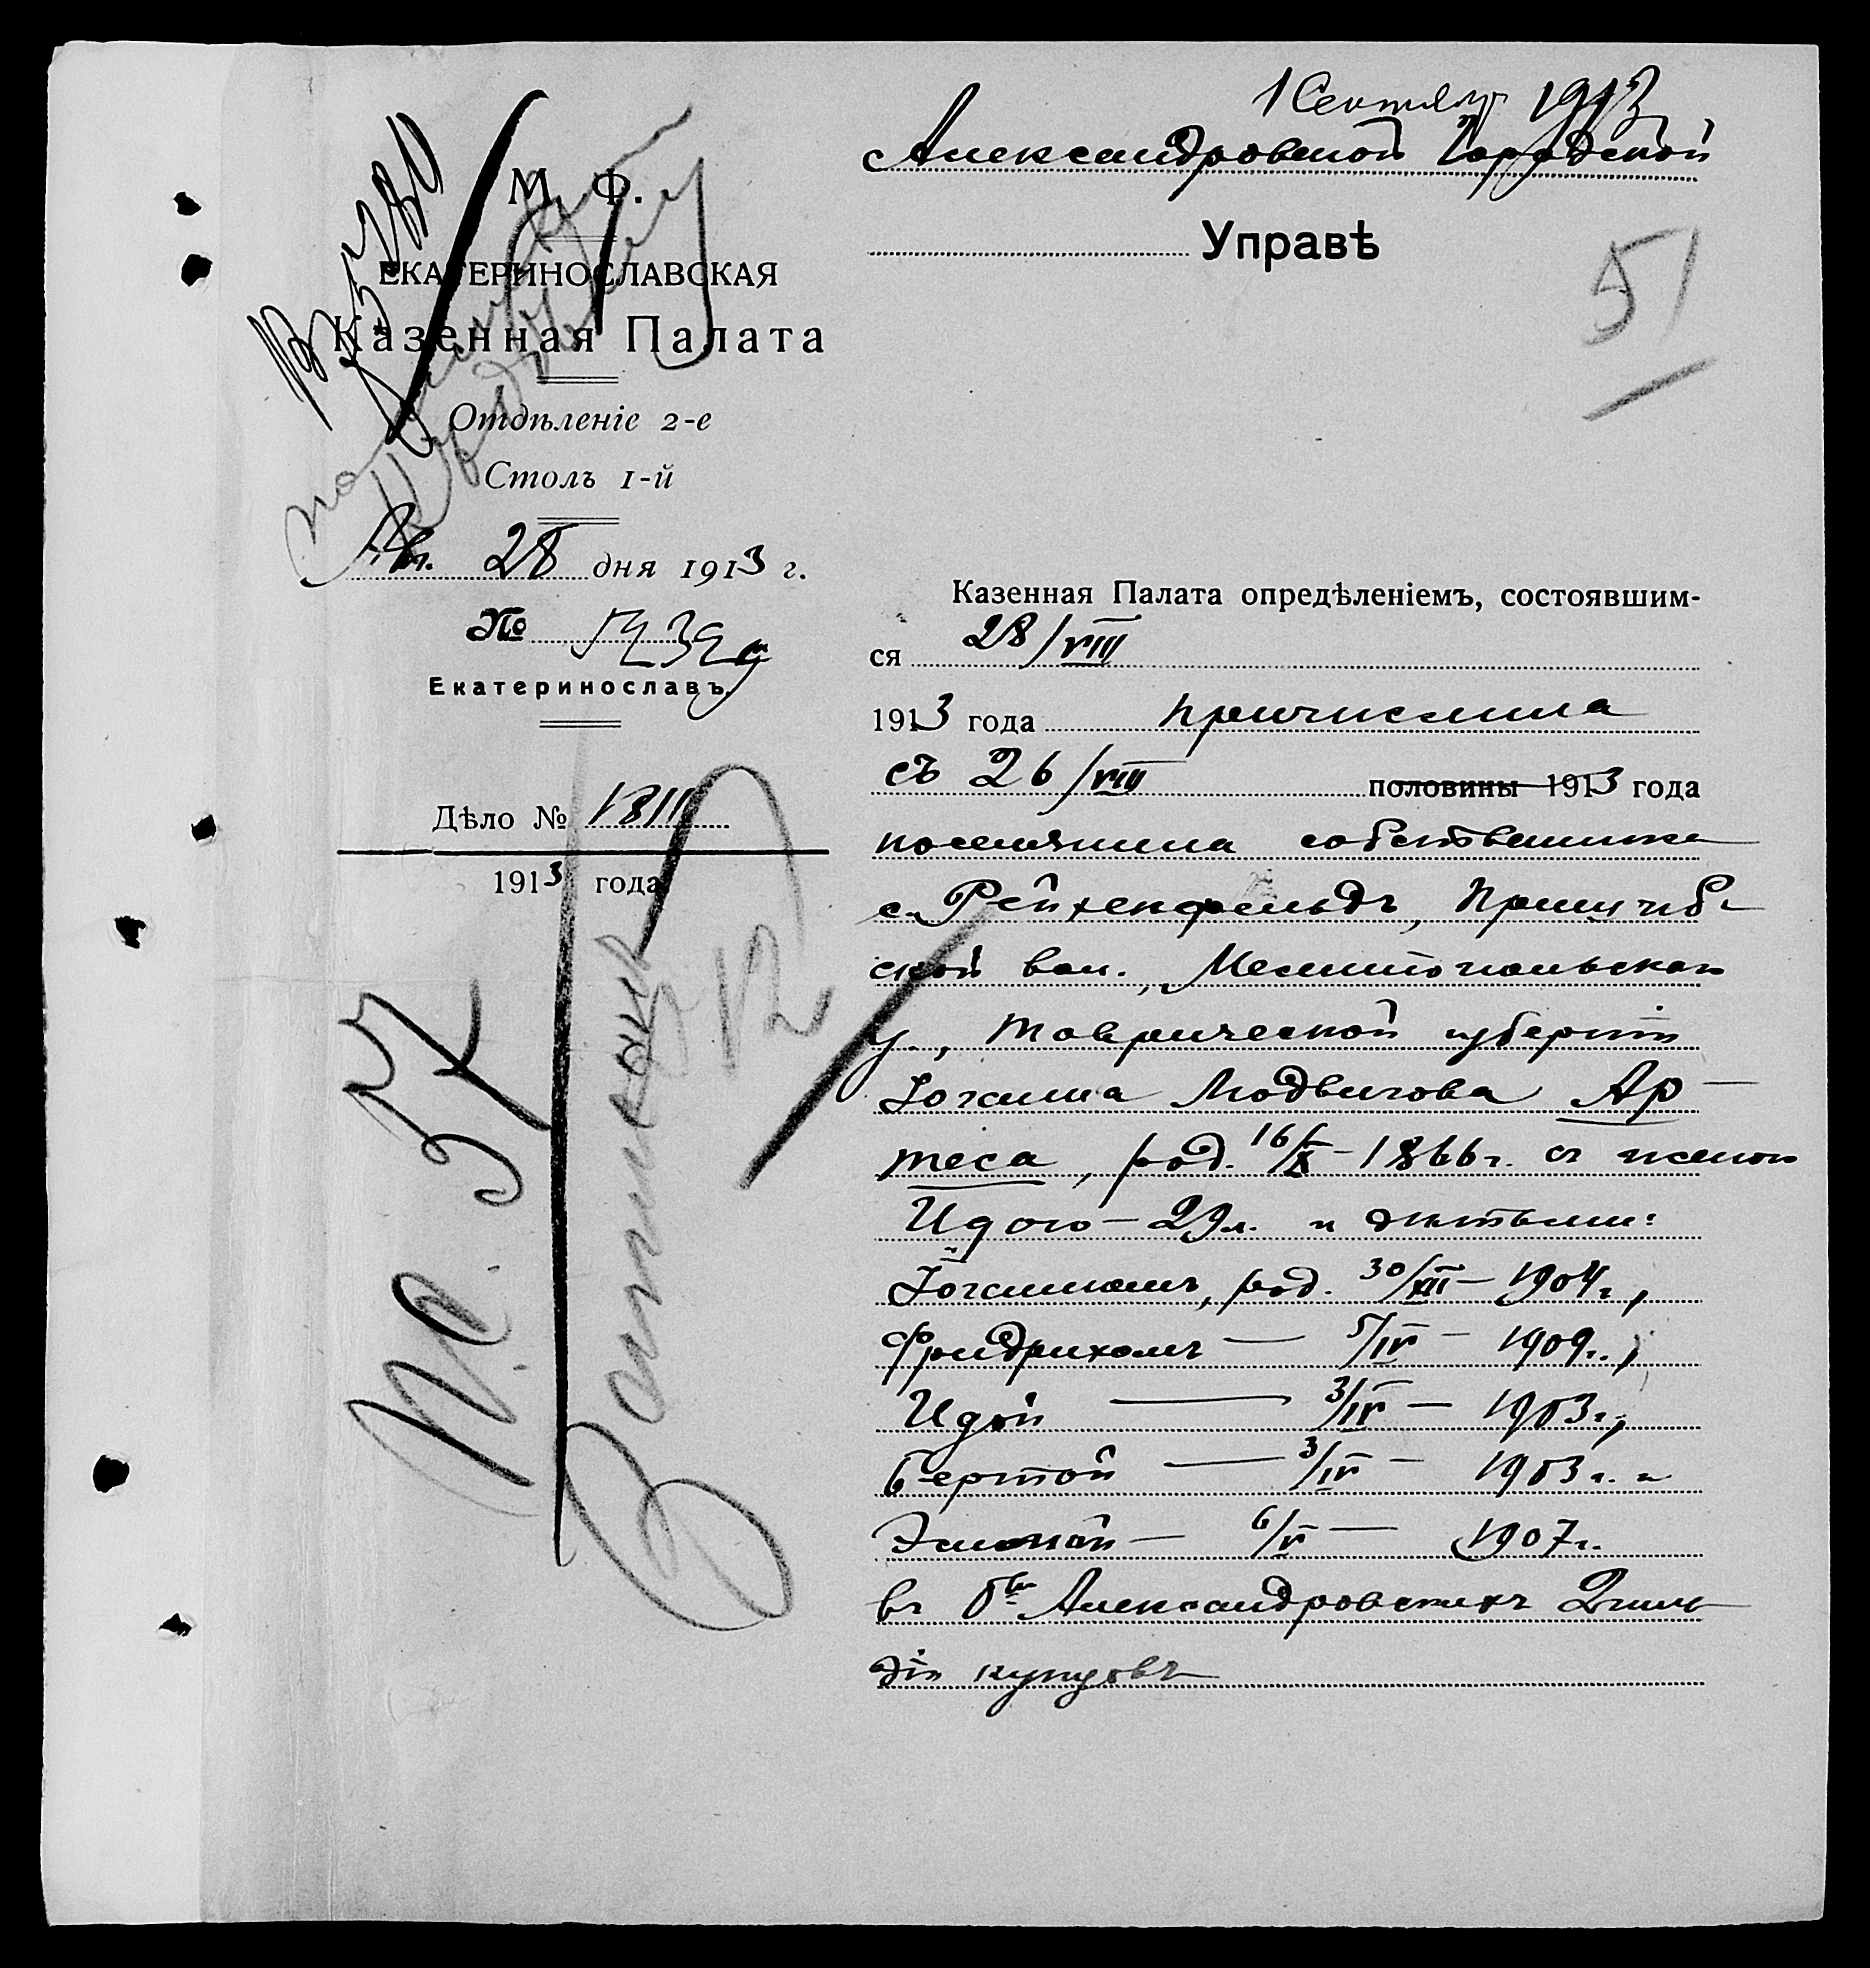 1 Сентября 1913
Александровской Городской
Управѣ
51
М. Ф.
ЕКАТЕРИНОСЛАВСКАЯ
Казенная Палата
Отдѣленіе 2-е
Столъ 1-й
Авг. 28 дня 1913 г.
№
Екатеринославъ.
Дѣло № 1811
1913 года
Казенная Палата опредѣленіемъ, состоявшим-
ся 28/VIII
1913 года причислила
съ 26/VIII половины 1913 года
поселянина собственника
с. Рейхенфельдъ, Пришиб-
ской вол., Мелитопольскаго
у., Таврической губерніи
Іоганна Людвигова Ар-
теса, род. 16/X - 1866 г. съ женою
Идою - 29 л. и дѣтьми:
Іоганномъ, род. 30/XII - 1904 г.,
Фридрихомъ — 5/IV - 1909 г.,
Идой — 3/IV - 1903 г.,
Бертой — 3/IV - 1903 г. и
— 6/V — 1907 г.
въ о-во Александровскихъ 2 гиль
діи купцовъ